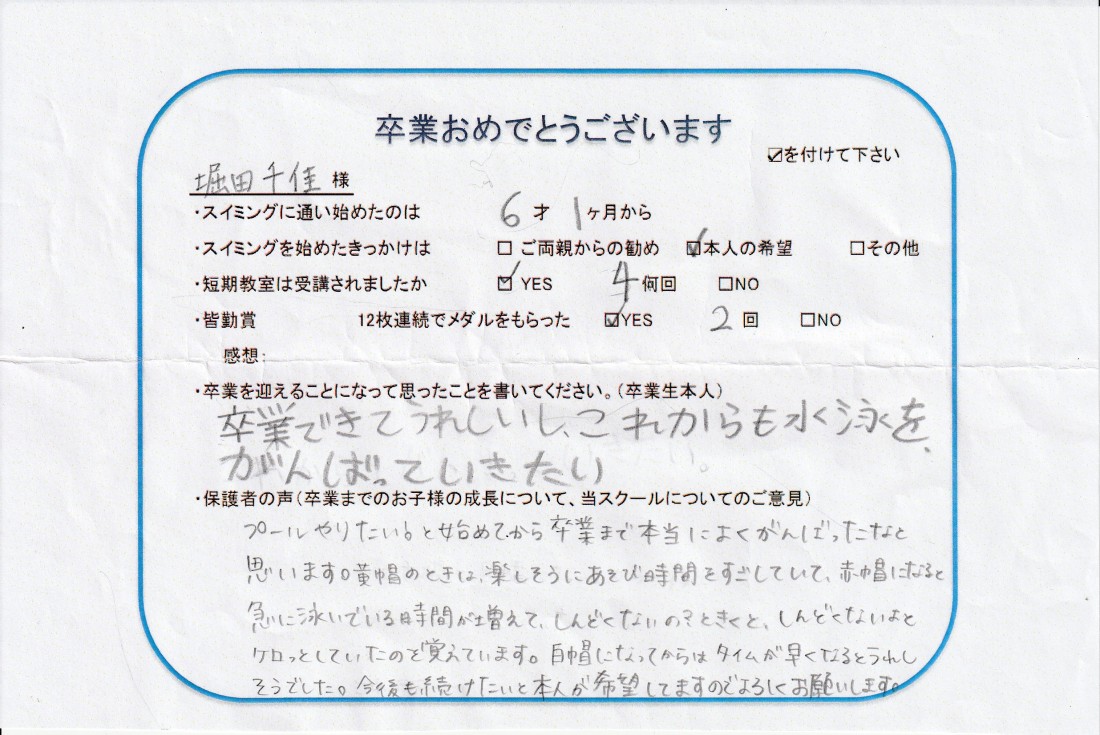 卒業おめでとうございます
☑を付けて下さい
堀田千佳 様
・スイミングに通い始めたのは 6 才 1 ヶ月から
・スイミングを始めたきっかけは □ ご両親からの勧め ☑本人の希望 □その他
・短期教室は受講されましたか ☑ YES 4 何回 □NO
・皆勤賞 12枚連続でメダルをもらった ☑YES 2 回 □NO
感想:
・卒業を迎えることになって思ったことを書いてください。(卒業生本人)
卒業できてうれしいし、これからも水泳を、
がんばっていきたい。
・保護者の声(卒業までのお子様の成長について、当スクールについてのご意見)
プールやりたい!と始めてから卒業まで本当によくがんばったなと
思います。黄帽のときは、楽しそうにあそび時間をすごしていて、赤帽になると
急に泳いでいる時間が増えて、しんどくないの?ときくと、しんどくないよと
ケロっとしていたのを覚えています。白帽になってからはタイムが早くなるとうれし
そうでした。今後も続けたいと本人が希望してますのでよろしくお願いします。